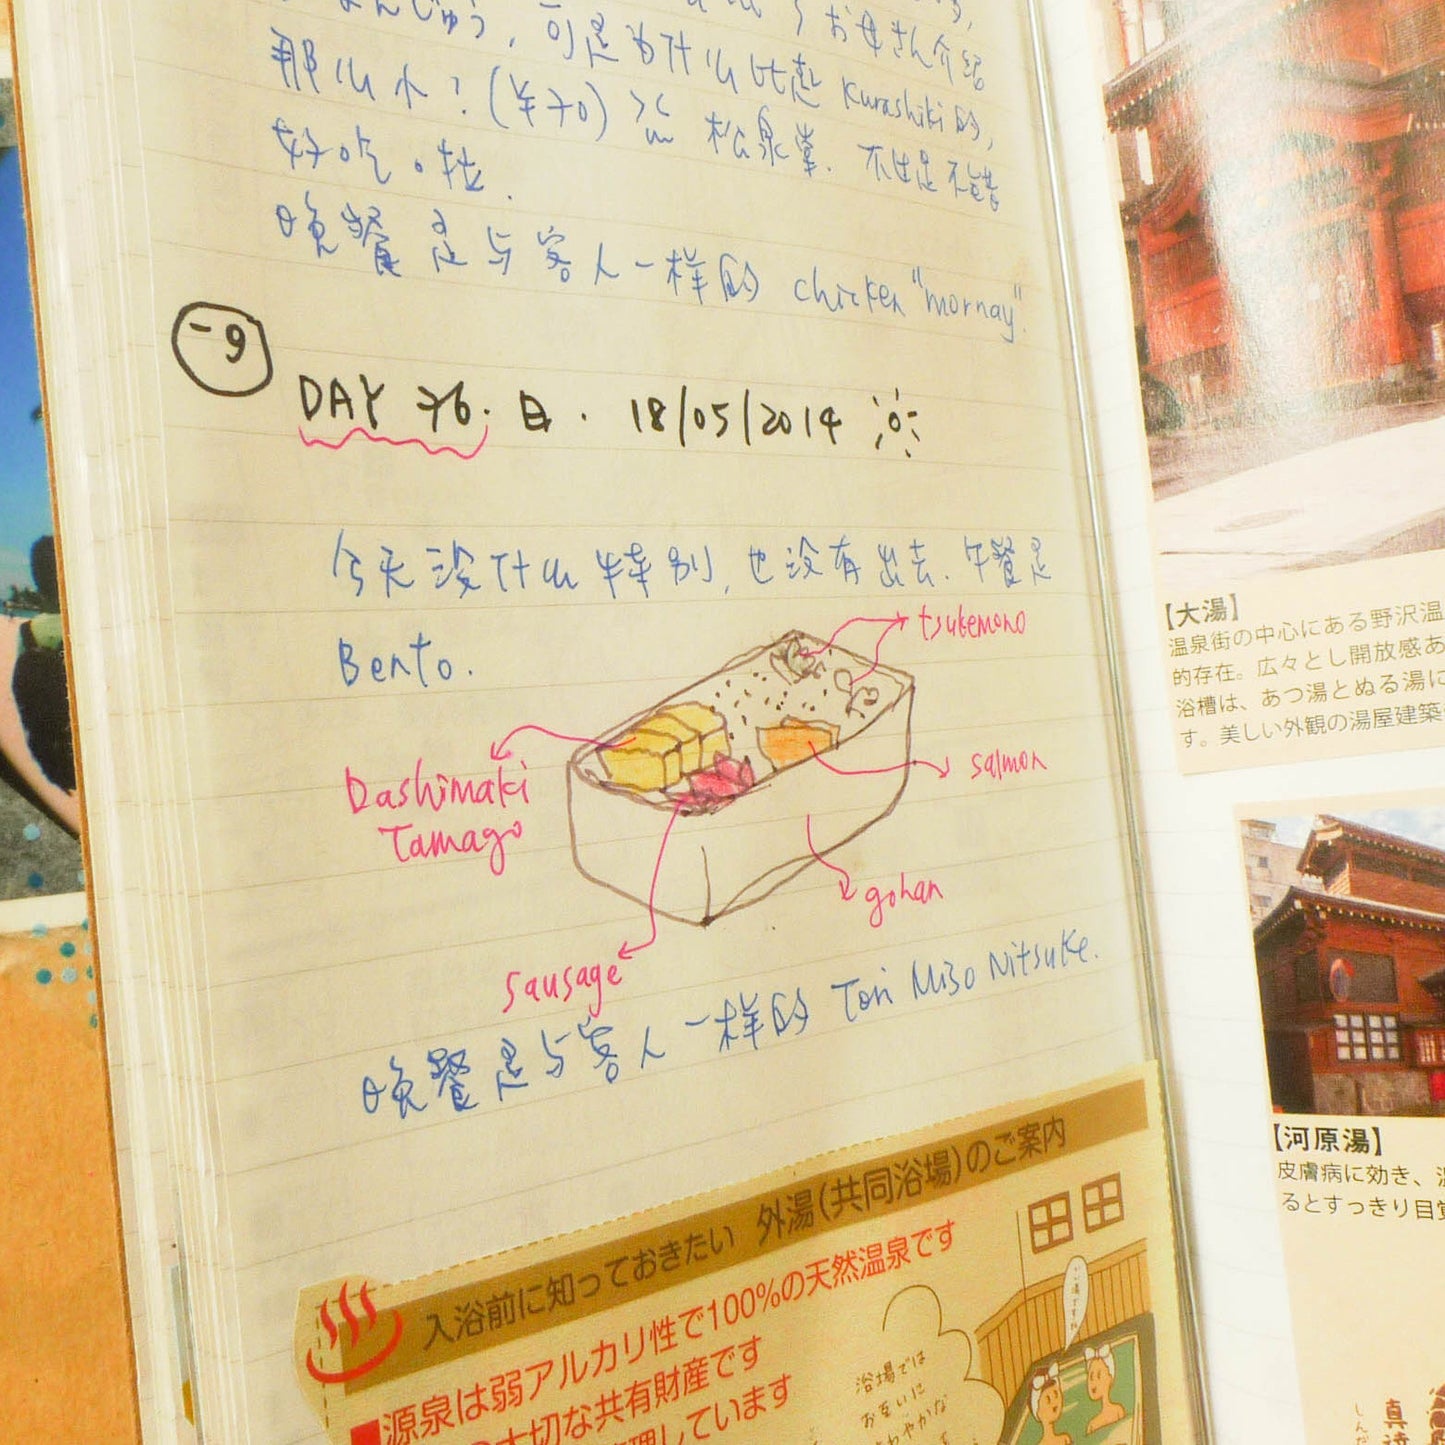 まんじゅう, 可是为什么比起 Kurashiki 的,
お母さん介绍
那么小? (¥70) 松泉堂. 不过是不错
好吃啦.
晚餐是与客人一样的 chicken "mornay".
-9
DAY 76. 日. 18/05/2014
今天没什么特别, 也没有出去. 午餐是
Bento.
tsukemono
Dashimaki
Tamago
salmon
gohan
sausage
晚餐是与客人一样的 Tori Miso Nitsuke.
入浴前に知っておきたい 外湯(共同浴場)のご案内
■源泉は弱アルカリ性で100%の天然温泉です
大切な共有財産です
理しています
浴場では
お互いに
【大湯】
温泉街の中心にある野沢温
的存在。広々とし開放感あ
浴槽は、あつ湯とぬる湯に
す。美しい外観の湯屋建築
【河原湯】
皮膚病に効き、
るとすっきり目覚